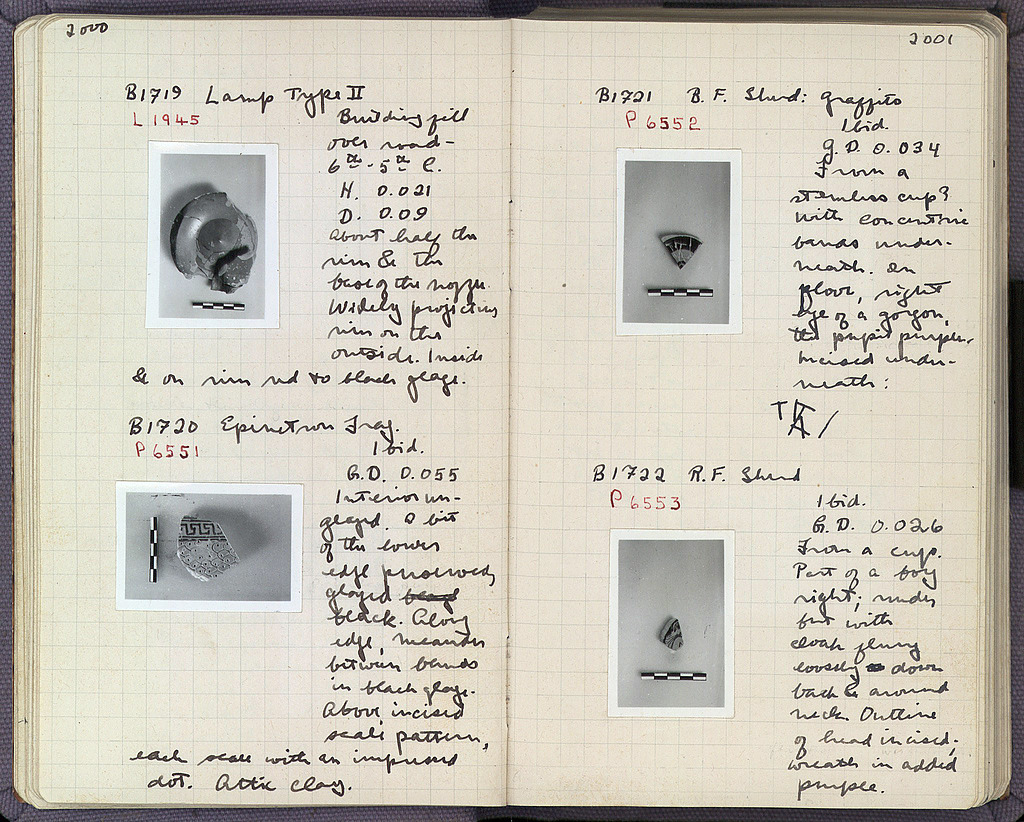 2000
B1719 Lamp Type II
L 1945
Building fill
over road -
6th - 5th C.
H. 0.021
D. 0.09
About half the
rim & the
base of the nozzle.
Widely projecting
rim on the
outside. Inside
& on rim red to black glaze.
B1720 Epinetron Frag.
P 6551
Ibid.
G.D. 0.055
Interior un-
glazed. A bit
of the lower
edge preserved,
glazed
black. Along
edge, meander
between bands
in black glaze.
Above, incised
scale pattern,
each scale with an impressed
dot. Attic clay.
2001
B1721 B.F. Sherd: graffito
P 6552
Ibid.
G.D. 0.034
From a
stemless cup?
with concentric
bands under-
neath. On
floor, right
eye of a gorgon,
the pupil purple.
Incised under-
neath:
B1722 R.F. Sherd
P 6553
Ibid.
G.D. 0.026
From a cup.
Part of a boy
right; nude
but with
cloak flung
loosely down
back & around
neck. Outline
of head incised;
wreath in added
purple.